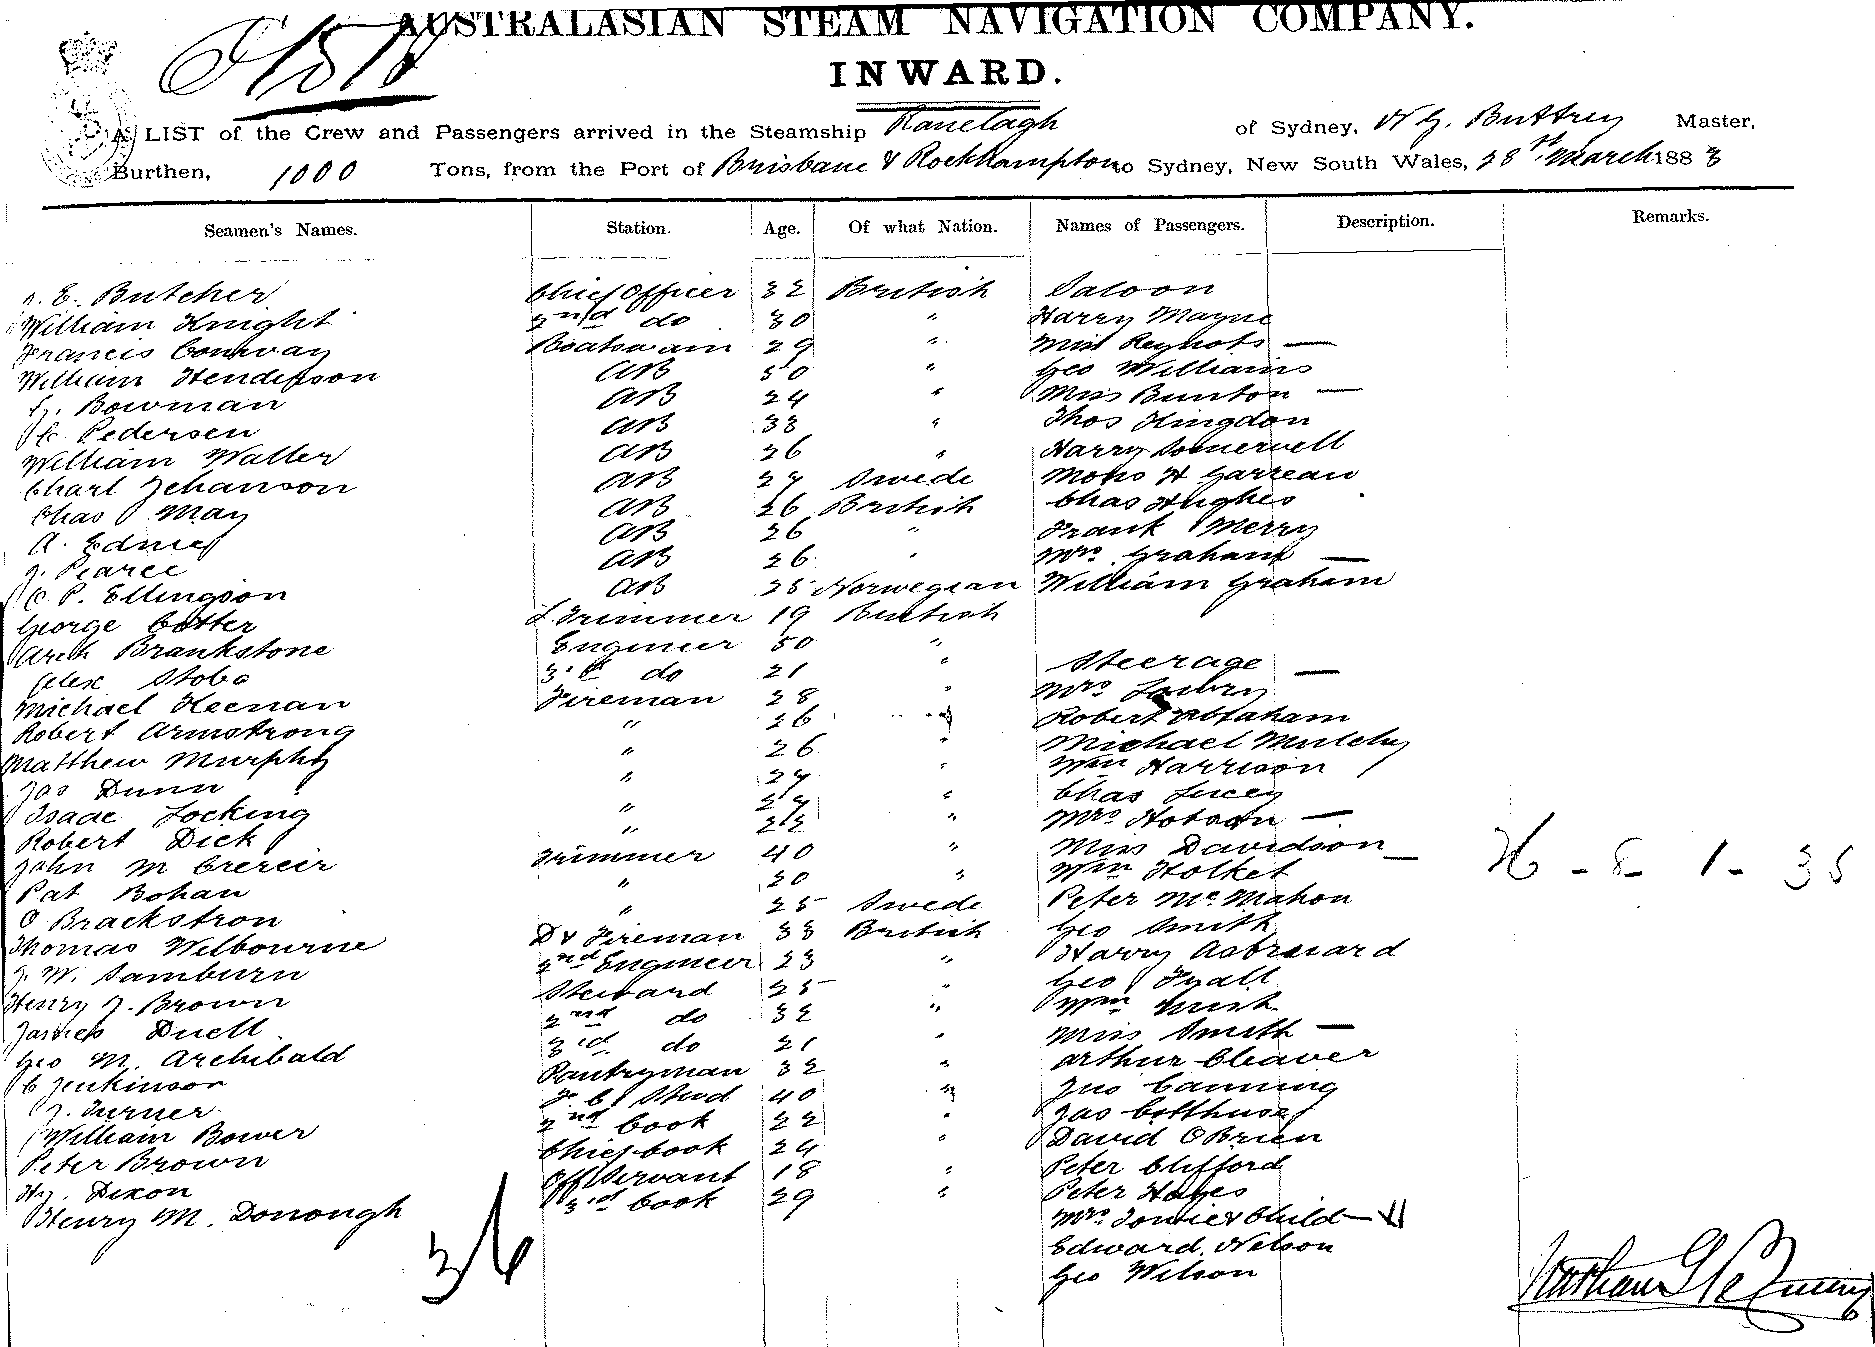 AUSTRALASIAN STEAM NAVIGATION COMPANY.
INWARD.
A LIST of the Crew and Passengers arrived in the Steamship Ranelagh of Sydney, N G. Buttrey Master,
Burthen, 1000 Tons, from the Port of Brisbane & Rockhampton to Sydney, New South Wales, 28th March 1883
Seamen's Names. Station. Age. Of what Nation. Names of Passengers. Description. Remarks.
E. Butcher Chief Officer 32 British Saloon
William Knight 2nd do 30 " Harry Mayne
Francis Conway Boatswain 29 " Miss Reynots —
William Henderson AB 50 " Geo Williams
Bowman AB 24 " Miss Bunton —
Pedersen AB 33 " Thos Kingdon
William Waller AB 26 " Harry Somervell
Charl Johanson AB 27 Swede Mons H Garreau
Chas May AB 26 British Chas Hughes
A. Edney AB 26 " Frank Merry
J. Pearce AB 26 " Mrs Graham —
C. P. Ellingson AB 25 Norwegian William Graham
George Cotter L. Trimmer 19 British
Arch Brankstone Engineer 50 "
Alex Stobo 3rd do 21 " Steerage —
Michael Heenan Fireman 28 " Mrs
Robert Armstrong " 26 " Robert Abraham
Matthew Murphy " 26 " Michael Mulchy
Jas Dunn " 27 " Wm Harrison
Isaac Locking " " Chas Lucey
Robert Dick " " Mrs Hobson —
John M Crereir Trimmer 40 " Miss Davidson —
Pat Bohan " 20 " Wm Holket
O Brackstron " 25 Swede Peter McMahon
Thomas Welbourne Dy Fireman 33 British Geo Smith
J. W. Samburn 2nd Engineer 23 " Harry
Henry J. Brown Steward 25 " Geo Tyall
James Duell 2nd do 32 " Wm
Geo M. Archibald 3rd do 21 " Miss Smith —
C Jenkinson Pantryman 32 " Arthur Cleaver
J. Turner F. C. Stwd 40 " Jno Canning
William Bower 2nd Cook 22 " Jas
Peter Brown Chief Cook 24 " David OBrien
Hy. Dixon Off Servant 18 " Peter Clifford
Henry M. Donough 3rd Cook 29 " Peter Hayes
Mrs Towie & Child —
Edward Nelson
Geo Wilson
36
36 - 8 - 1 - 35